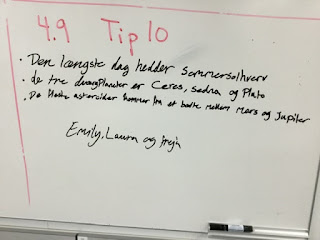 4.9 Tip 10
• Den længste dag hedder Sommersolhverv
• de tre dværgplaneter er Ceres, Sedna og Pluto
• De fleste asteroider kommer fra et bælte mellem Mars og Jupiter
Emily, Laura og Freja